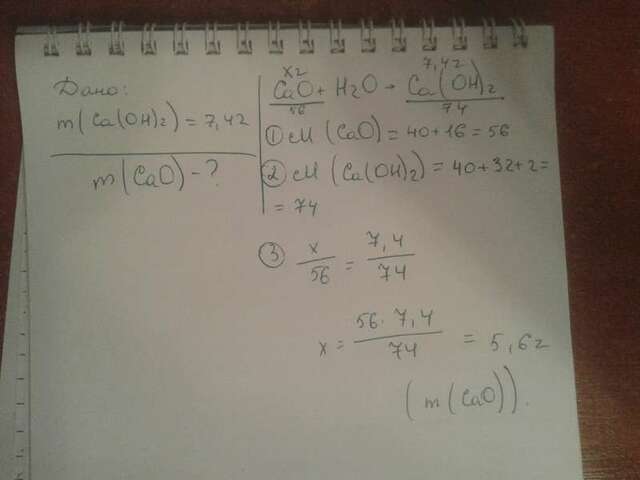 Дано:
m(Ca(OH)₂) = 7,4г
m(CaO) - ?
xг 7,4г
CaO + H₂O → Ca(OH)₂
56 74
① M (CaO) = 40+16 = 56
② M (Ca(OH)₂) = 40+32+2=
= 74
③ x/56 = 7,4/74
x = 56·7,4/74 = 5,6г
(m(CaO)).